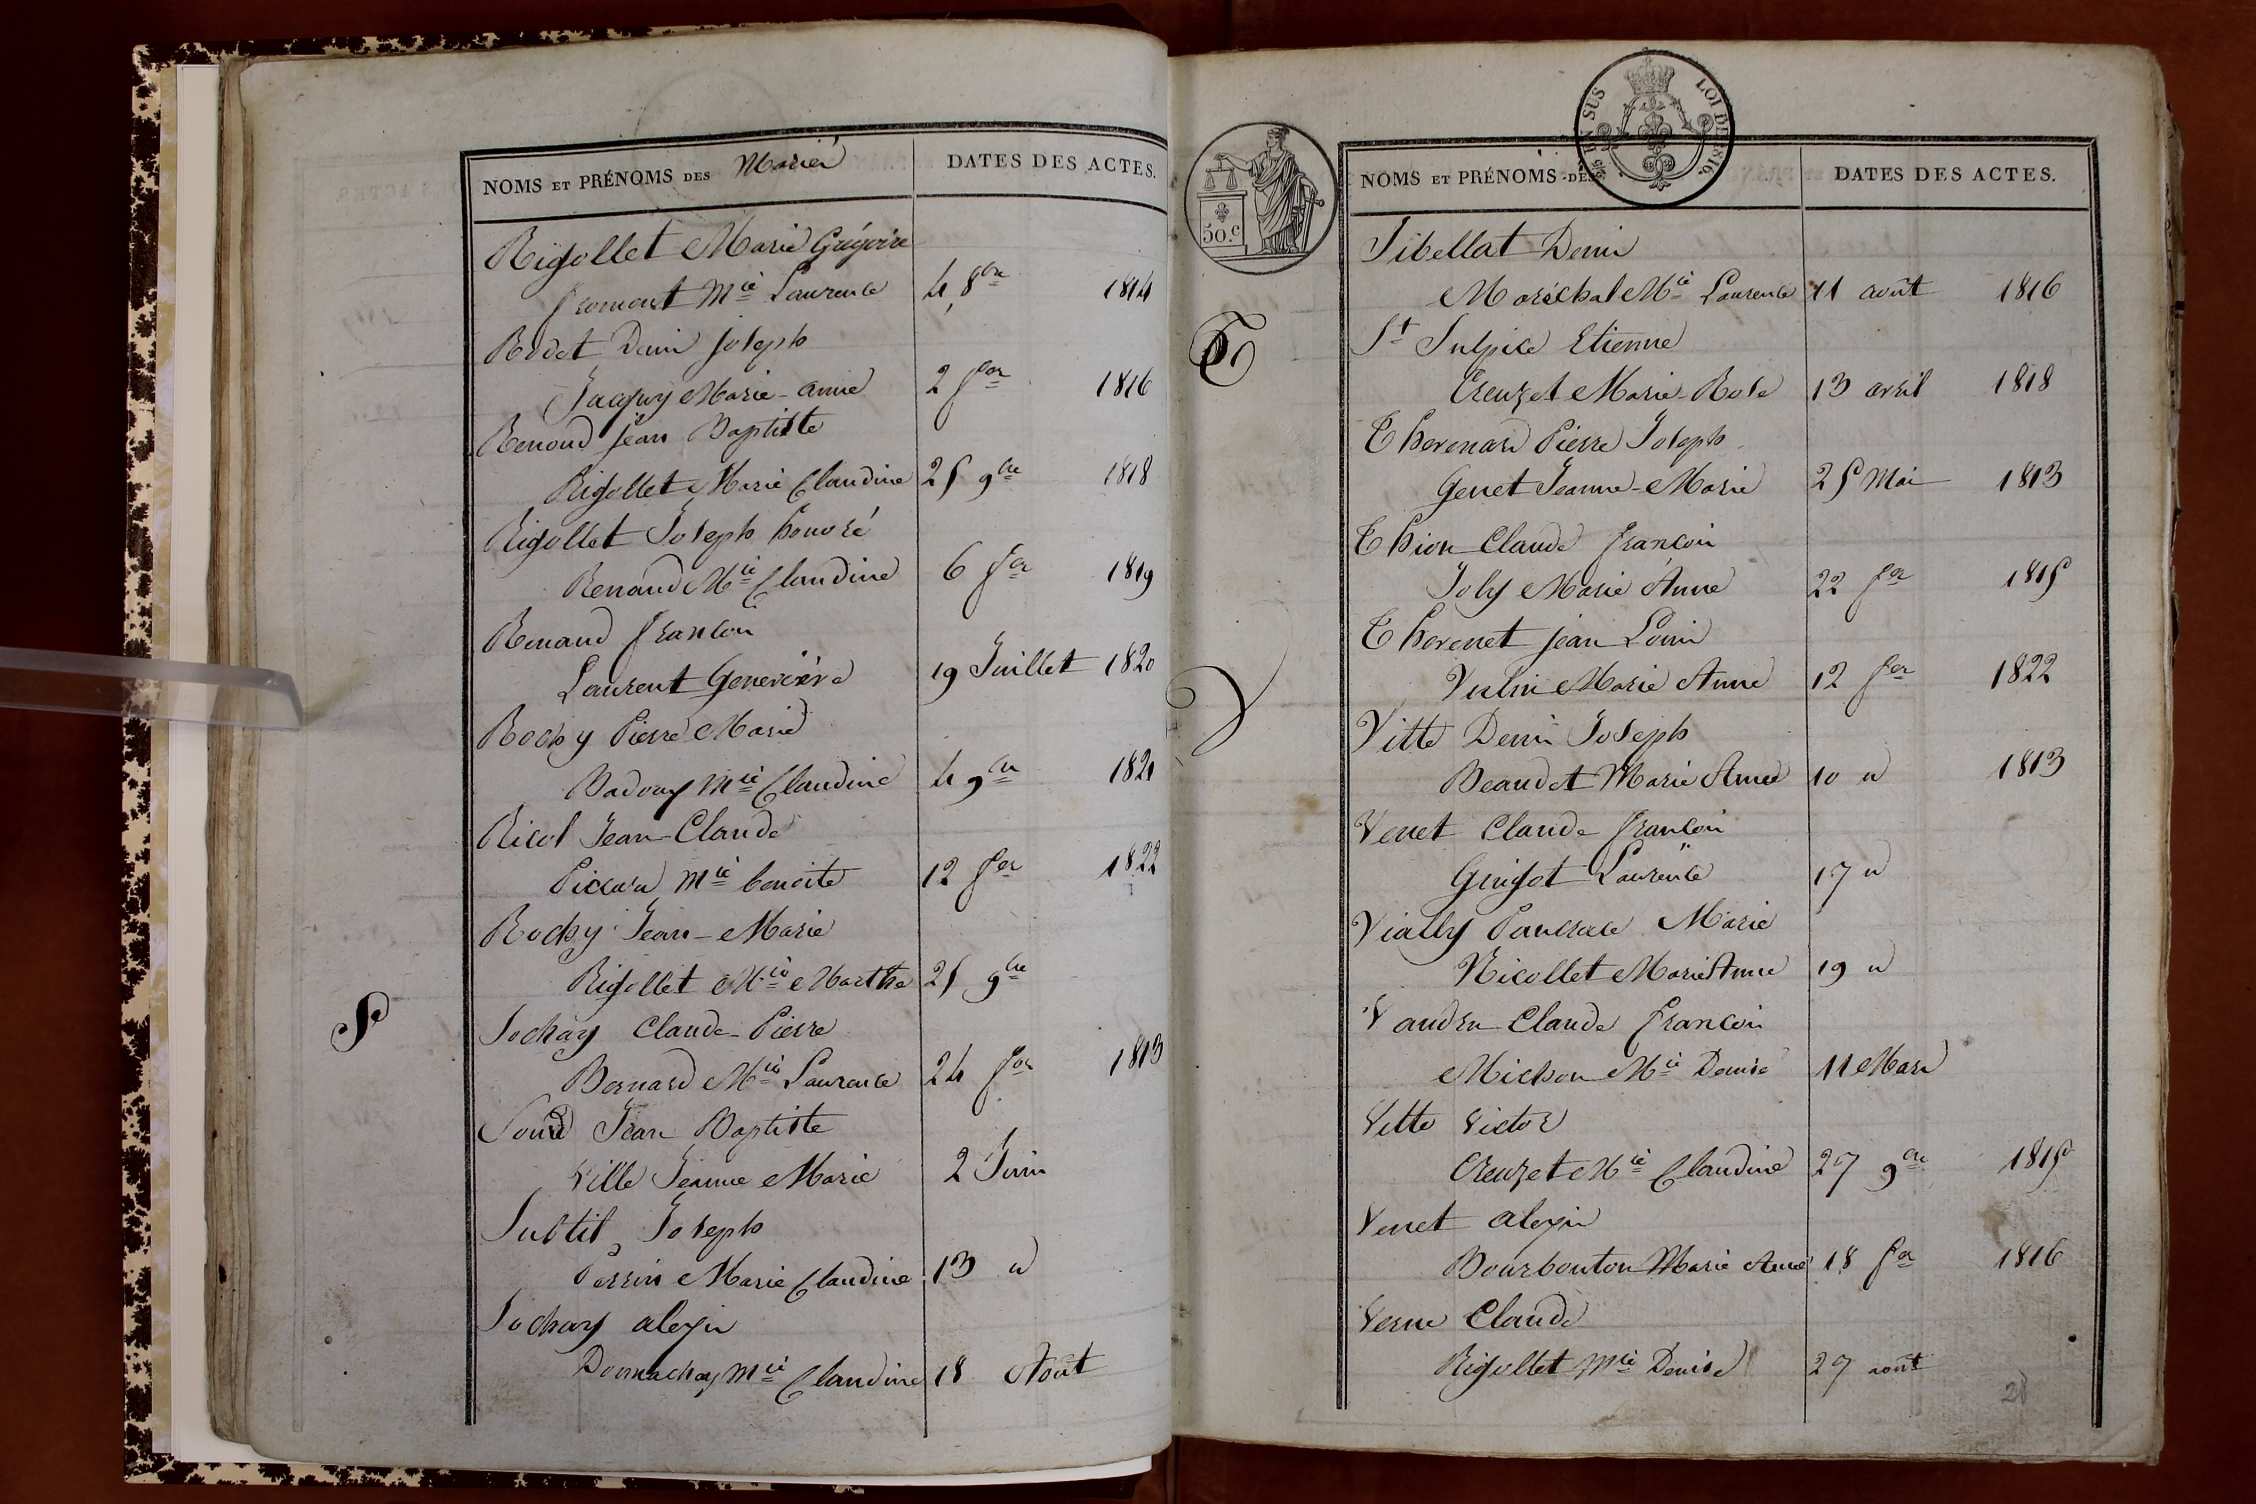 NOMS ET PRÉNOMS DES Mariés
DATES DES ACTES.
Rigollet Marie Grégoire
fromont Mie Laurence 4 8bre 1814
Rodet Denis joseph
Jacquy Marie-anne 2 fer 1816
Renoud jean Baptiste
Rigollet Marie Claudine 25 9bre 1818
Rigollet Joseph honoré
Renaud Mie Claudine 6 fer 1819
Renaud françois
Laurent Geneviève 19 Juillet 1820
Rochy Pierre Marie
Badoux Mie Claudine 4 9bre 1821
Ricol Jean-Claude
Mie benoite 12 fer 1822
Rochy Jean-Marie
Rigollet Mie Marthe 25 9bre
S
Sochay Claude-Pierre
Bernard Mie Laurence 24 fer 1813
Soud Jean Baptiste
Ville Jeanne Marie 2 Juin
Subtil Joseph
Perrin Marie Claudine 13 "
Sochay alexis
Donnachay Mie Claudine 18 Août
50.c
EN SUS
LOI DE 1816.
NOMS ET PRÉNOMS DES
DATES DES ACTES.
Sibellat Denis
Maréchal Mie Laurence 11 août 1816
St Sulpice Etienne
Creuzet Marie-Rose 13 avril 1818
T
Thevenard Pierre Joseph
Genet Jeanne-Marie 25 Mai 1813
Thion Claude françois
Joly Marie Anne 22 fer 1815
Thevenet jean Louis
Vulin Marie Anne 12 fer 1822
V
Vitte Denis Joseph
Beaudet Marie Anne 10 " 1813
Venet Claude françois
Guigot Laurence 17 "
Vially Pancrace Marie
Nicollet Marie Anne 19 "
Claude françois
Michon Mie Denise 11 Mars
Vitte Victor
Creuzet Mie Claudine 27 9bre 1815
Venet alexis
Bourbouton Marie Anne 18 fer 1816
Verne Claude
Rigollet Mie Denise 27 août